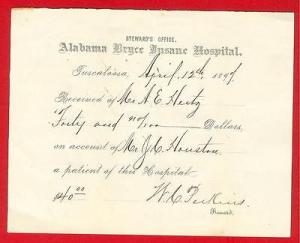 STEWARD'S OFFICE.
Alabama Bryce Insane Hospital.
Tuscaloosa, April 12th, 1897.
Received of Mr A E Hertz
Forty and no/100 Dollars,
on account of Mr J C Houston
a patient of this Hospital.
$40.00 W. C. Perkins
Steward.